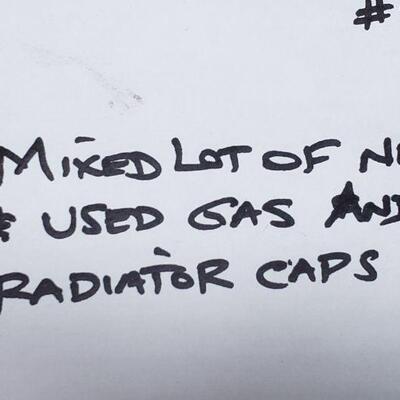 #
MIXED LOT OF
& USED GAS AND
RADIATOR CAPS